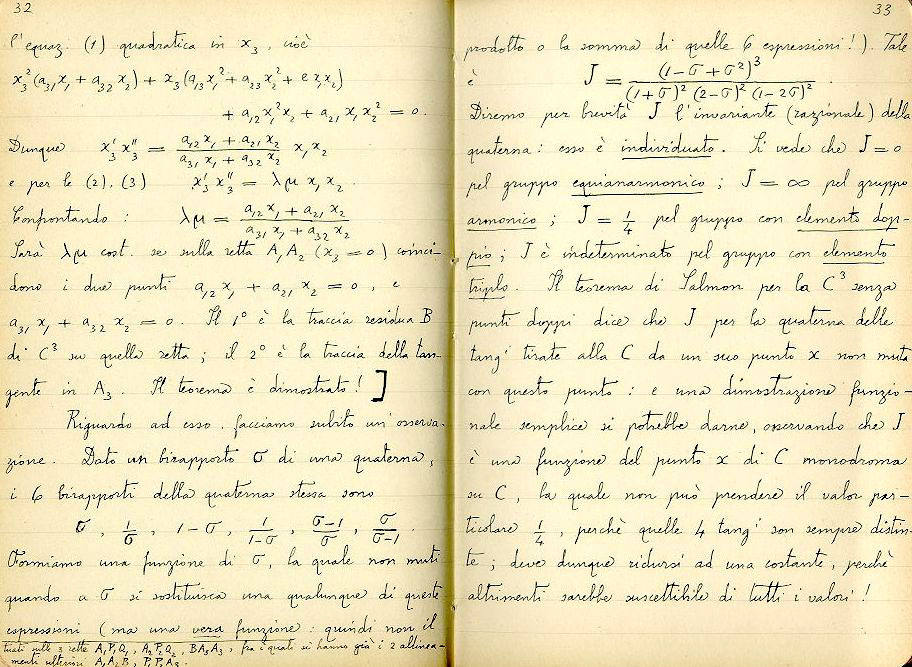 32
l'equaz. (1) quadratica in x₃, cioè
x₃²(a₃₁x₁ + a₃₂x₂) + x₃(a₁₃x₁² + a₂₃x₂² + e x₁x₂)
+ a₁₂x₁²x₂ + a₂₁x₁x₂² = 0.
Dunque x₃' x₃'' = (a₁₂x₁ + a₂₁x₂)/(a₃₁x₁ + a₃₂x₂) x₁x₂
e per le (2), (3) x₃' x₃'' = λμ x₁x₂.
Confrontando : λμ = (a₁₂x₁ + a₂₁x₂)/(a₃₁x₁ + a₃₂x₂)
Sarà λμ cost. se sulla retta A₁A₂ (x₃ = 0) coinci-
dono i due punti a₁₂x₁ + a₂₁x₂ = 0, e
a₃₁x₁ + a₃₂x₂ = 0. Il 1° è la traccia residua B
di C³ su quella retta ; il 2° è la traccia della tan-
gente in A₃. Il teorema è dimostrato ! ]
Riguardo ad esso facciamo subito un'osserva-
zione. Dato un birapporto σ di una quaterna,
i 6 birapporti della quaterna stessa sono
σ, 1/σ, 1-σ, 1/(1-σ), (σ-1)/σ, σ/(σ-1).
Formiamo una funzione di σ, la quale non muti
quando a σ si sostituisca una qualunque di queste
espressioni (ma una vera funzione : quindi non il
tuati sulle 3 rette A₁P₁Q₁, A₂P₂Q₂, BA₃A₃, fra i quali si hanno già i 2 allinea-
menti ulteriori A₁A₂B, P₁P₂A₃.
33
prodotto o la somma di quelle 6 espressioni !). Tale
è J = (1-σ+σ²)³/((1+σ)² (2-σ)² (1-2σ)²).
Diremo per brevità J l'invariante (razionale) della
quaterna : esso è individuato. Si vede che J = 0
pel gruppo equianarmonico ; J = ∞ pel gruppo
armonico ; J = 1/4 pel gruppo con elemento dop-
pio ; J è indeterminato pel gruppo con elemento
triplo. Il teorema di Salmon per la C³ senza
punti doppi dice che J per la quaterna delle
tang! tirate alla C da un suo punto x non muta
con questo punto : e una dimostrazione funzio-
nale semplice si potrebbe darne, osservando che J
è una funzione del punto x di C monodroma
su C, la quale non può prendere il valor par-
ticolare 1/4, perchè quelle 4 tang! son sempre distin-
te ; deve dunque ridursi ad una costante, perchè
altrimenti sarebbe suscettibile di tutti i valori !